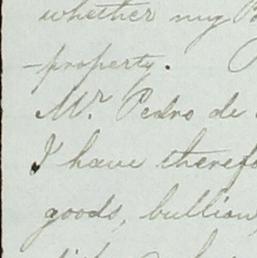 whether my
-property.
Mr. Pedro de
I have therefo
goods, bullion,